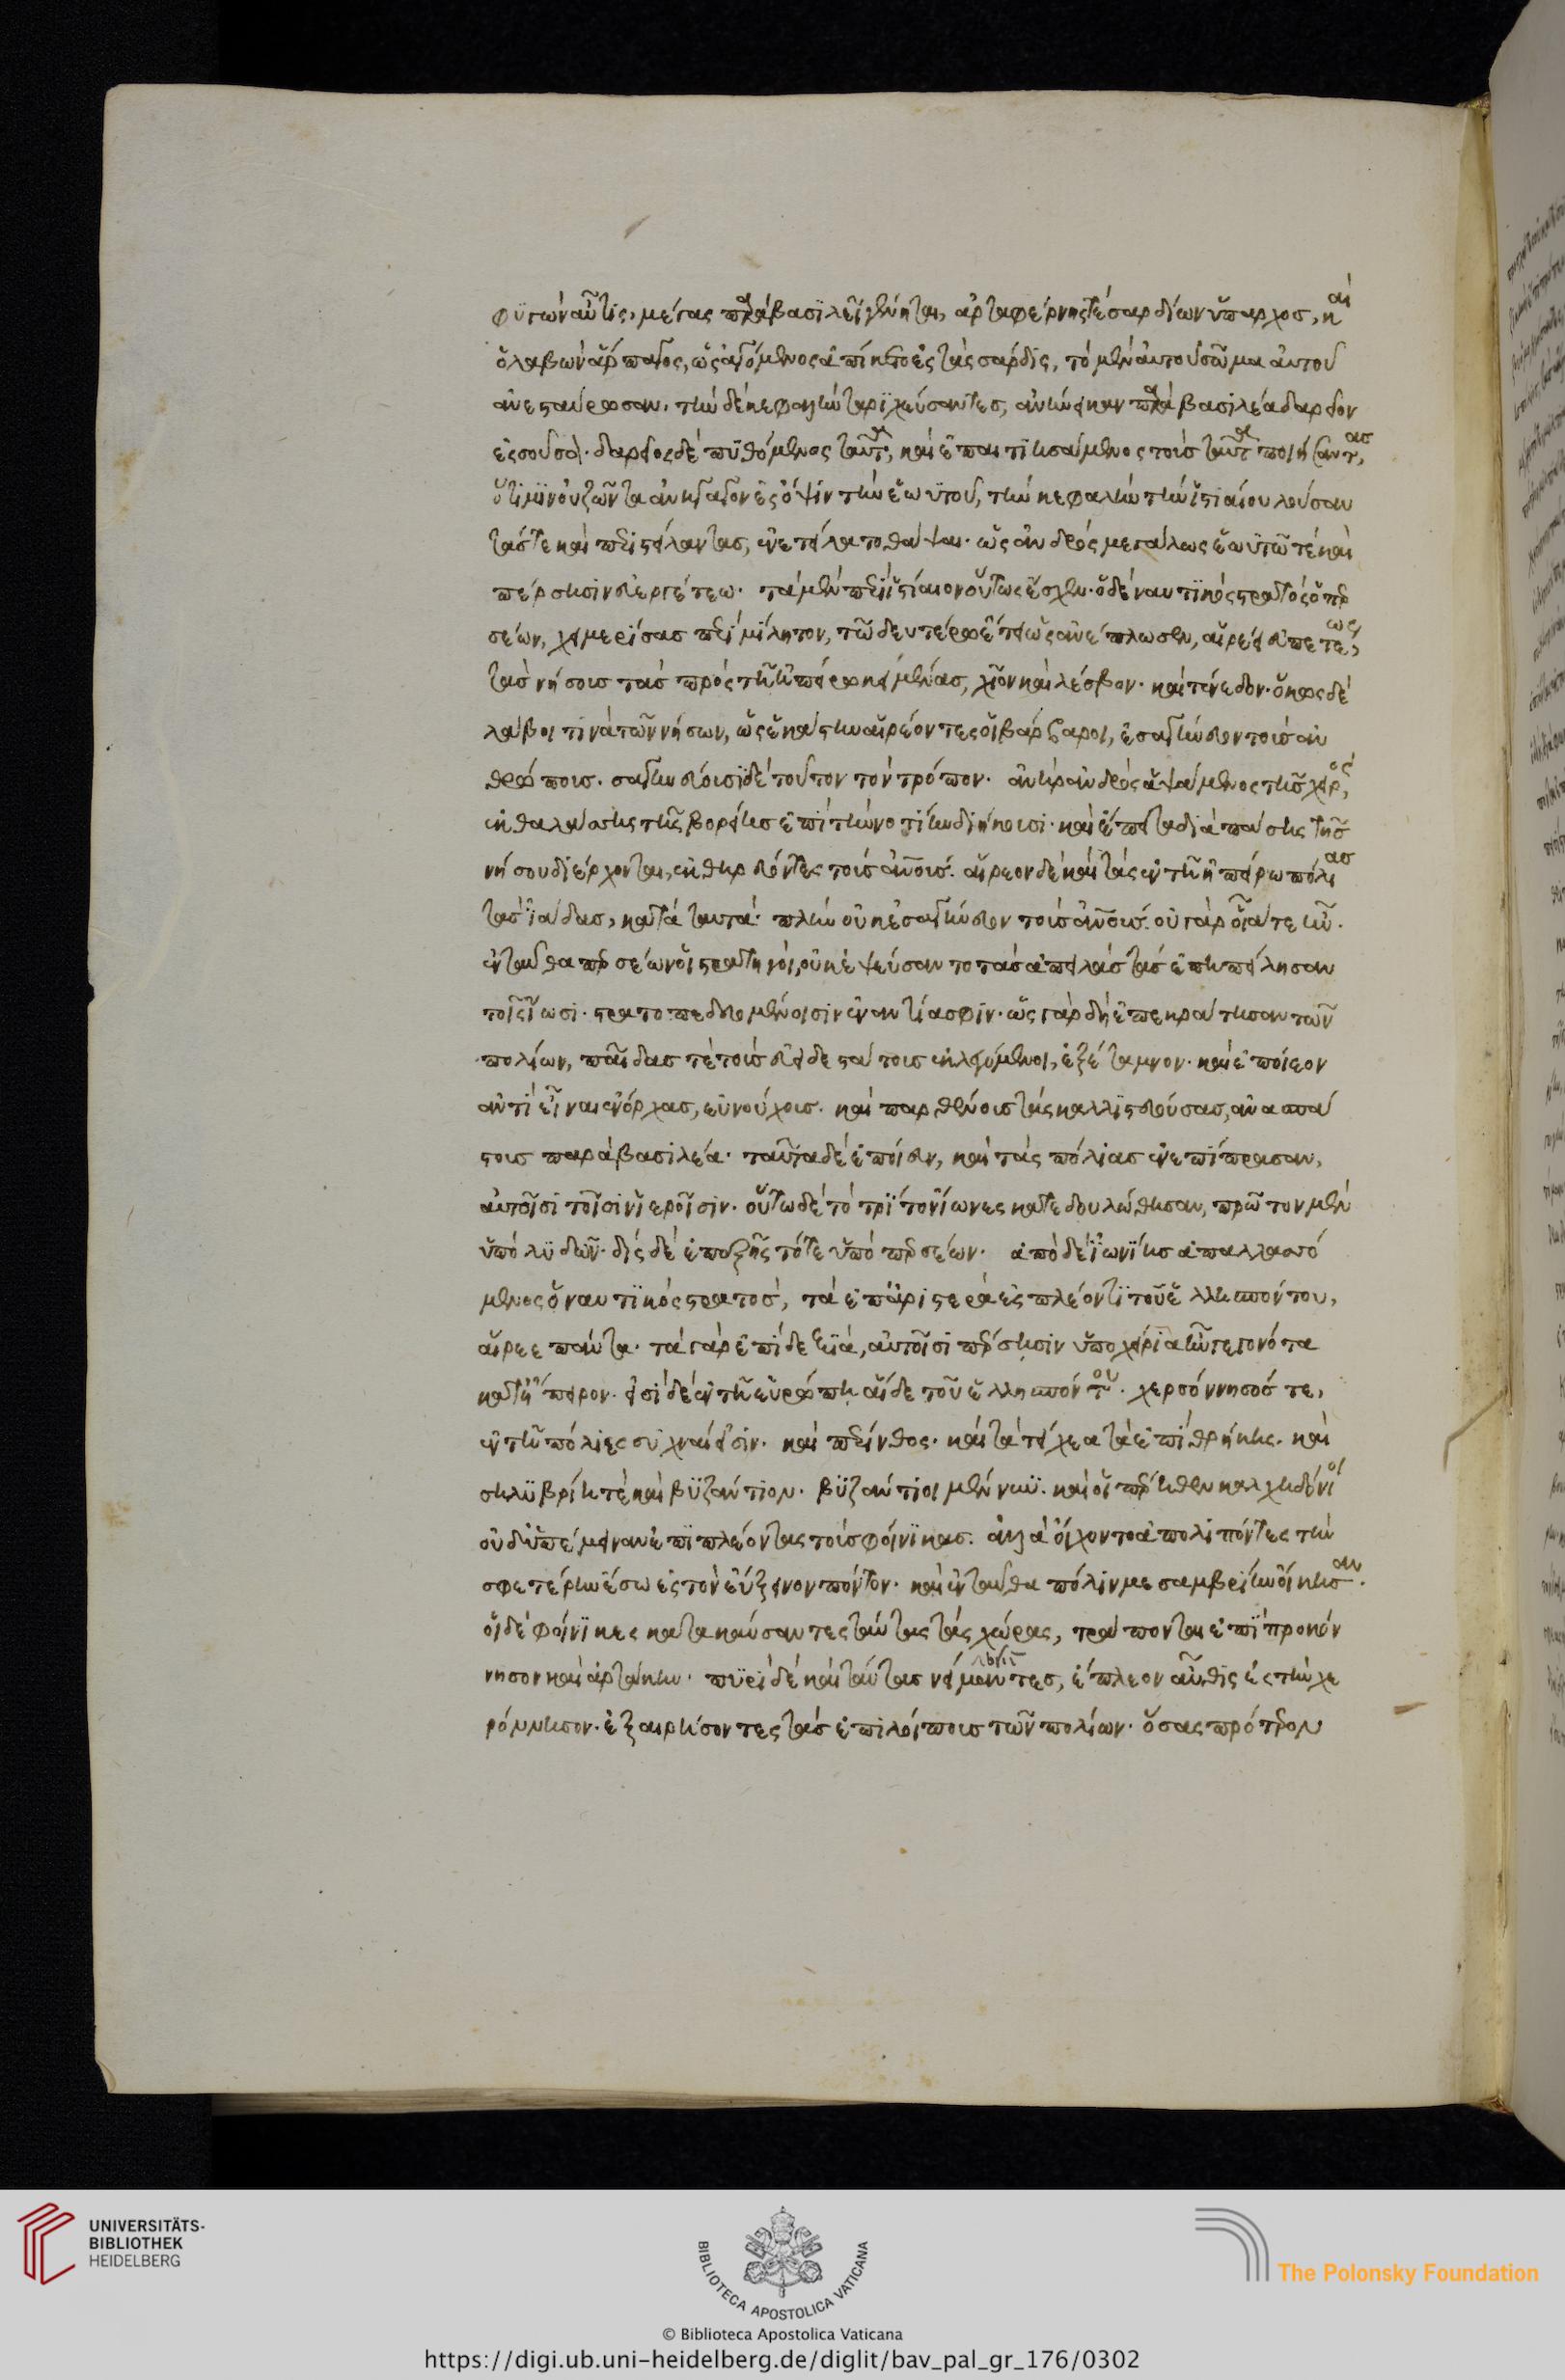 φυγὼν αὖτις, μέγας παρὰ βασιλέϊ γένηται, ἀρταφέρνης τὲ σαρδίων ὕπαρχος, καὶ
ὁ λαβὼν ἅρπαγος, ὡς ἀγόμενος ἀπίκετο ἐς τὰς σάρδις, τὸ μὲν αὐτοῦ σῶμα αὐτοῦ
ἀνεσταύρωσαν. τὴν δὲ κεφαλὴν ταριχεύσαντες, ἀνήνεικαν παρὰ βασιλέα δαρεῖον
ἐς σοῦσα. δαρεῖος δὲ πυθόμενος ταῦτα, καὶ ἐπαιτιησάμενος τοὺς ταῦτα ποιήσαντας,
ὅτι μιν οὐ ζῶντα ἀνήγαγον ἐς ὄψιν τὴν ἑωυτοῦ, τὴν κεφαλὴν τὴν ἱστιαίου λούσαν
τάς τε καὶ περιστείλαντας, ἐνετείλατο θάψαι. ὡς ἀνδρὸς μεγάλως ἑωυτῷ τὲ καὶ
πέρσησιν εὐεργέτεω. τὰ μὲν περὶ ἱστίαιον οὕτως ἔσχεν. ὁ δὲ ναυτικὸς στρατὸς ὁ περ
σέων, χειμερίσας περὶ μίλητον, τῷ δευτέρῳ ἔτει ὡς ἀνέπλωσεν, αἱρέει εὐπετέως
τὰς νήσους τὰς πρὸς τῇ ἠπείρῳ κειμένας, χίον καὶ λέσβον. καὶ τένεδον. ὅκως δὲ
λάβοι τινὰ τῶν νήσων, ὡς ἑκάστην αἱρέοντες οἱ βάρβαροι, ἐσαγήνευον τοὺς ἀν
θρώπους. σαγηνεύουσι δὲ τοῦτον τὸν τρόπον. ἀνὴρ ἀνδρὸς ἁψάμενος τῆς χειρός,
ἐκ θαλάσσης τῆς βορείης ἐπὶ τὴν νοτίην διήκουσι. καὶ ἔπειτα διὰ πάσης τῆς
νήσου διέρχονται, ἐκθηρεύοντες τοὺς ἀνους. αἵρεον δὲ καὶ τὰς ἐν τῇ ἠπείρω πόλιας
τὰς ἰάδας, κατὰ ταυτά. πλὴν οὐκ ἐσαγήνευον τοὺς ἀνους. οὐ γὰρ οἷά τε ἦν.
ἐνταῦθα περσέων οἱ στρατηγοὶ, οὐκ ἐψεύσαντο τὰς ἀπειλὰς τὰς ἐπηπείλησαν
τοῖς ἴωσι. στρατοπεδευομένοισιν ἐναντία σφιν. ὡς γὰρ δὴ ἐπεκράτησαν τῶν
πολίων, παῖδας τὲ τοὺς εὐειδεστάτους ἐκλεγόμενοι, ἐξέταμνον. καὶ ἐποίεον
ἀντὶ εἶναι ἐνόρχας, εὐνούχους. καὶ παρθένους τὰς καλλιστευούσας, ἀνασπά
στους παρὰ βασιλέα. ταῦτα δὲ ἐποίευν, καὶ τὰς πόλιας ἐνεπίπρασαν,
αὐτοῖσι τοῖσιν ἱεροῖσιν. οὕτω δὲ τὸ τρίτον ἴωνες κατεδουλώθησαν, πρῶτον μὲν
ὑπὸ λυδῶν. δὶς δὲ ἐπεξῆς τότε ὑπὸ περσέων. ἀπὸ δὲ ἰωνίης ἀπαλλασσό
μενος ὁ ναυτικὸς στρατὸς, τὰ ἐπ' ἀριστερὰ ἐς πλέοντι τοῦ ἑλλησπόντου,
αἵρεε πάντα. τὰ γὰρ ἐπὶ δεξιά, αὐτοῖσι πέρσησιν ὑποχείρια ἦν γεγονότα
κατ' ἤπειρον. εἰσὶ δὲ ἐν τῇ εὐρώπη αἵδε τοῦ ἑλλησπόντου. χερσόννησός τε,
ἐν τῇ πόλιες συχναί εἰσιν. καὶ πέρινθος. καὶ τὰ τείχεα τὰ ἐπὶ θρήκης. καὶ
σηλυβρίη τὲ καὶ βυζάντιον. βυζάντιοι μέν νυν. καὶ οἱ πέρηθεν καλχηδόνιοι
οὐδ' ὑπέμειναν ἐπιπλέοντας τοὺς φοίνικας. ἀλλὰ οἴχοντο ἀπολιπόντες τὴν
σφετέρην ἔσω ἐς τὸν εὔξεινον πόντον. καὶ ἐνταῦθα πόλιν μεσαμβρίην οἴκησαν.
οἱ δὲ φοίνικες κατακαύσαντες ταύτας τὰς χώρας, τράπονται ἐπὶ προκόν
νησον καὶ ἀρτάκην. πυρὶ δὲ καὶ ταύτας νείμαντες, ἔπλεον αὖθις ἐς τὴν χε
ρόννησον. ἐξαιρήσοντες τὰς ἐπιλοίπους τῶν πολίων. ὅσας πρότερον
UNIVERSITÄTS-
BIBLIOTHEK
HEIDELBERG
BIBLIOTECA APOSTOLICA VATICANA
The Polonsky Foundation
© Biblioteca Apostolica Vaticana
https://digi.ub.uni-heidelberg.de/diglit/bav_pal_gr_176/0302